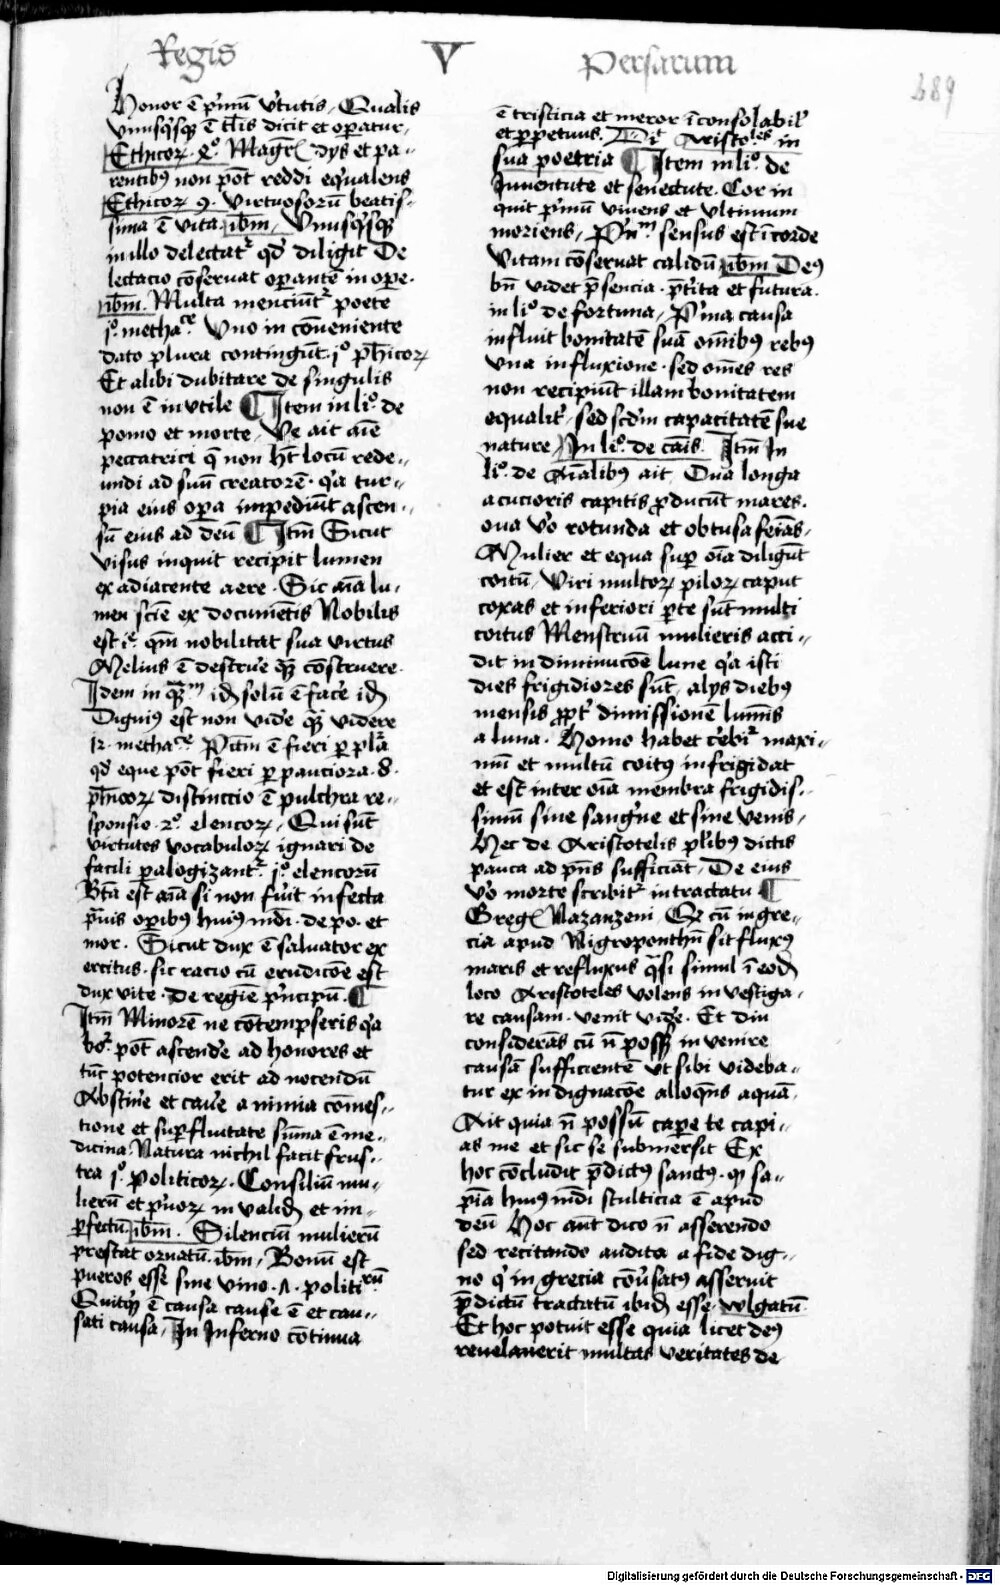 Regis V Persarum
489
Honor ē p̄miū v̄tutis, Qualis
vnusq̄sq̨ ē tl̄is dicit et oꝑatur,
Ethicoꝝ. 8o. Magr̄ dijs et pa-
rentibus non pōt reddi eq̄ualens
Ethicoꝝ 9. virtuosorū beatis-
sima ē vita ibm̄, Vnusq̄sq̨
in illo delectatr qd̄ diligit De
lectacio cōseruat oꝑantē in oꝑe.
ibm̄. Multa menciūtr poete
jo. methace. Vno in conueniente
dato plura contingūt. jo ph̄icoꝝ
Et alibi dubitare de singulis
non ē in vtile ¶ Item in lio. de
pomo et morte, Ve ait aīe
peccatrici q̄ non ht̄ locū rede-
undi ad suū creatorē. q̄a tur-
pia eius oꝑa impediūt ascen-
sū eius ad deū ¶ Itm̄ Sicut
visus inquit recipit lumen
ex adiacente aere. Sic aīa lu-
men scīe ex documētis Nobilis
est ie. qm̄ nobilitat sua virtus
Melius ē destrue quā cōstruere.
Idem in quam idē solū ē face idē
Dignius est non vide quā videre
12. methace. P̄cm̄ ē fieri ꝑ pl̄a
qd̄ eque pōt fieri ꝑ pauciora. 8.
ph̄icoꝝ distinccio ē pulchra re-
sponsio. 2o. elencoꝝ, Qui sūt
virtutes vocabuloꝝ ignari de
facili ꝑalogizantr. jo elencorū
Bt̄a est aīa si non fuit infecta
p̄uis oꝑibus huius mdi. de po. et
mor. Sicut dux ē saluator ex
ercitus. sic racio cū erudicōe est
dux vite. De regīe p̄ncipū. ¶
Itm̄ Minorē ne cōtempseris q̄a
hor pōt ascende ad honores et
tūc potencior erit ad nocendū
Abstine et caue a nimia comes-
tione et suꝑfluitate sūma ē me-
dicina. Natura nichil facit frus-
tra jo. politicoꝝ. Consiliū mu-
lierū et p̄uoꝝ in validū et im-
ꝑfectū ibm̄. Silenciū mulierū
prestat ornatū. ibm̄, Bonū est
pueros esse sine vino. Λ. politirū
Quitq̄d ē causa cause ē et cau-
sati causa, In Inferno cōtinua
ē tristicia et meror īconsolabil̄
et ꝑpetuus. Dit Aristoles in
sua poetria ¶ Item in lio. de
Iuuentute et senectute. Cor in
quit p̄mū viuens et vltimum
moriens, P̄nm sensus est ī corde
Vitam cōseruat calidū ibm̄ Deus
bn̄ videt p̄sencia. p̄tita et futura.
in lio de fortuna, P̄ma causa
influit bonitatē suā om̄ibus rebus
vna influxione. sed om̄es res
non recipiūt illam bonitatem
equalit̄, sed scdm̄ capacitatē sue
nature, In lio. de cāis. Itm̄ In
lio. de Aīalibus ait, Oua longa
acucioris capitis ꝓducūt mares.
oua vo rotunda et obtusa feīas.
Mulier et equa suꝑ oīa diligūt
coitū, Viri multoꝝ piloꝝ caput
coxas et inferiori ꝑte sūt multi
coitus Menstruū mulieris acci-
dit in diminucōe lune q̄a isti
dies frigidiores sūt, alijs diebus
mensis ꝓpt̄ dimissionē lumīs
a luna. Homo habet cebr̄ maxi-
mū et multū coitus infrigidat
et est inter oīa membra frigidis-
simū sine sangne et sine venis,
Hec de Aristotelis pl̄ibus dictis
pauca ad p̄ns sufficiāt, De eius
vo morte scribitr in tractatu ¶
Greḡ Nazanzeni Qz cū in gre-
cia apud Nigroponthū sit fluxus
maris et refluxus q̄si simul ī eodē
loco Aristoteles volens in vestiga-
re causam. venit vide. Et diu
considerās cū n̄ posset in venire
causā sufficientē vt sibi videba-
tur ex indignacōe alloqns aquā.
Ait quia n̄ possū caꝑe te capi-
as me et sic se submersit Ex
hoc cōcludit p̄dictus sanctus. qz sa-
pīa huius mdi stulticia ē apud
deū Hoc aūt dico n̄ asserendo
sed recitando audita a fide dig-
no q̄ in grecia cōuersatus asseruit
p̄dictū tractatū ibidē esse wlgatū.
Et hoc potuit esse quia licet deus
reuelauerit multas veritates de